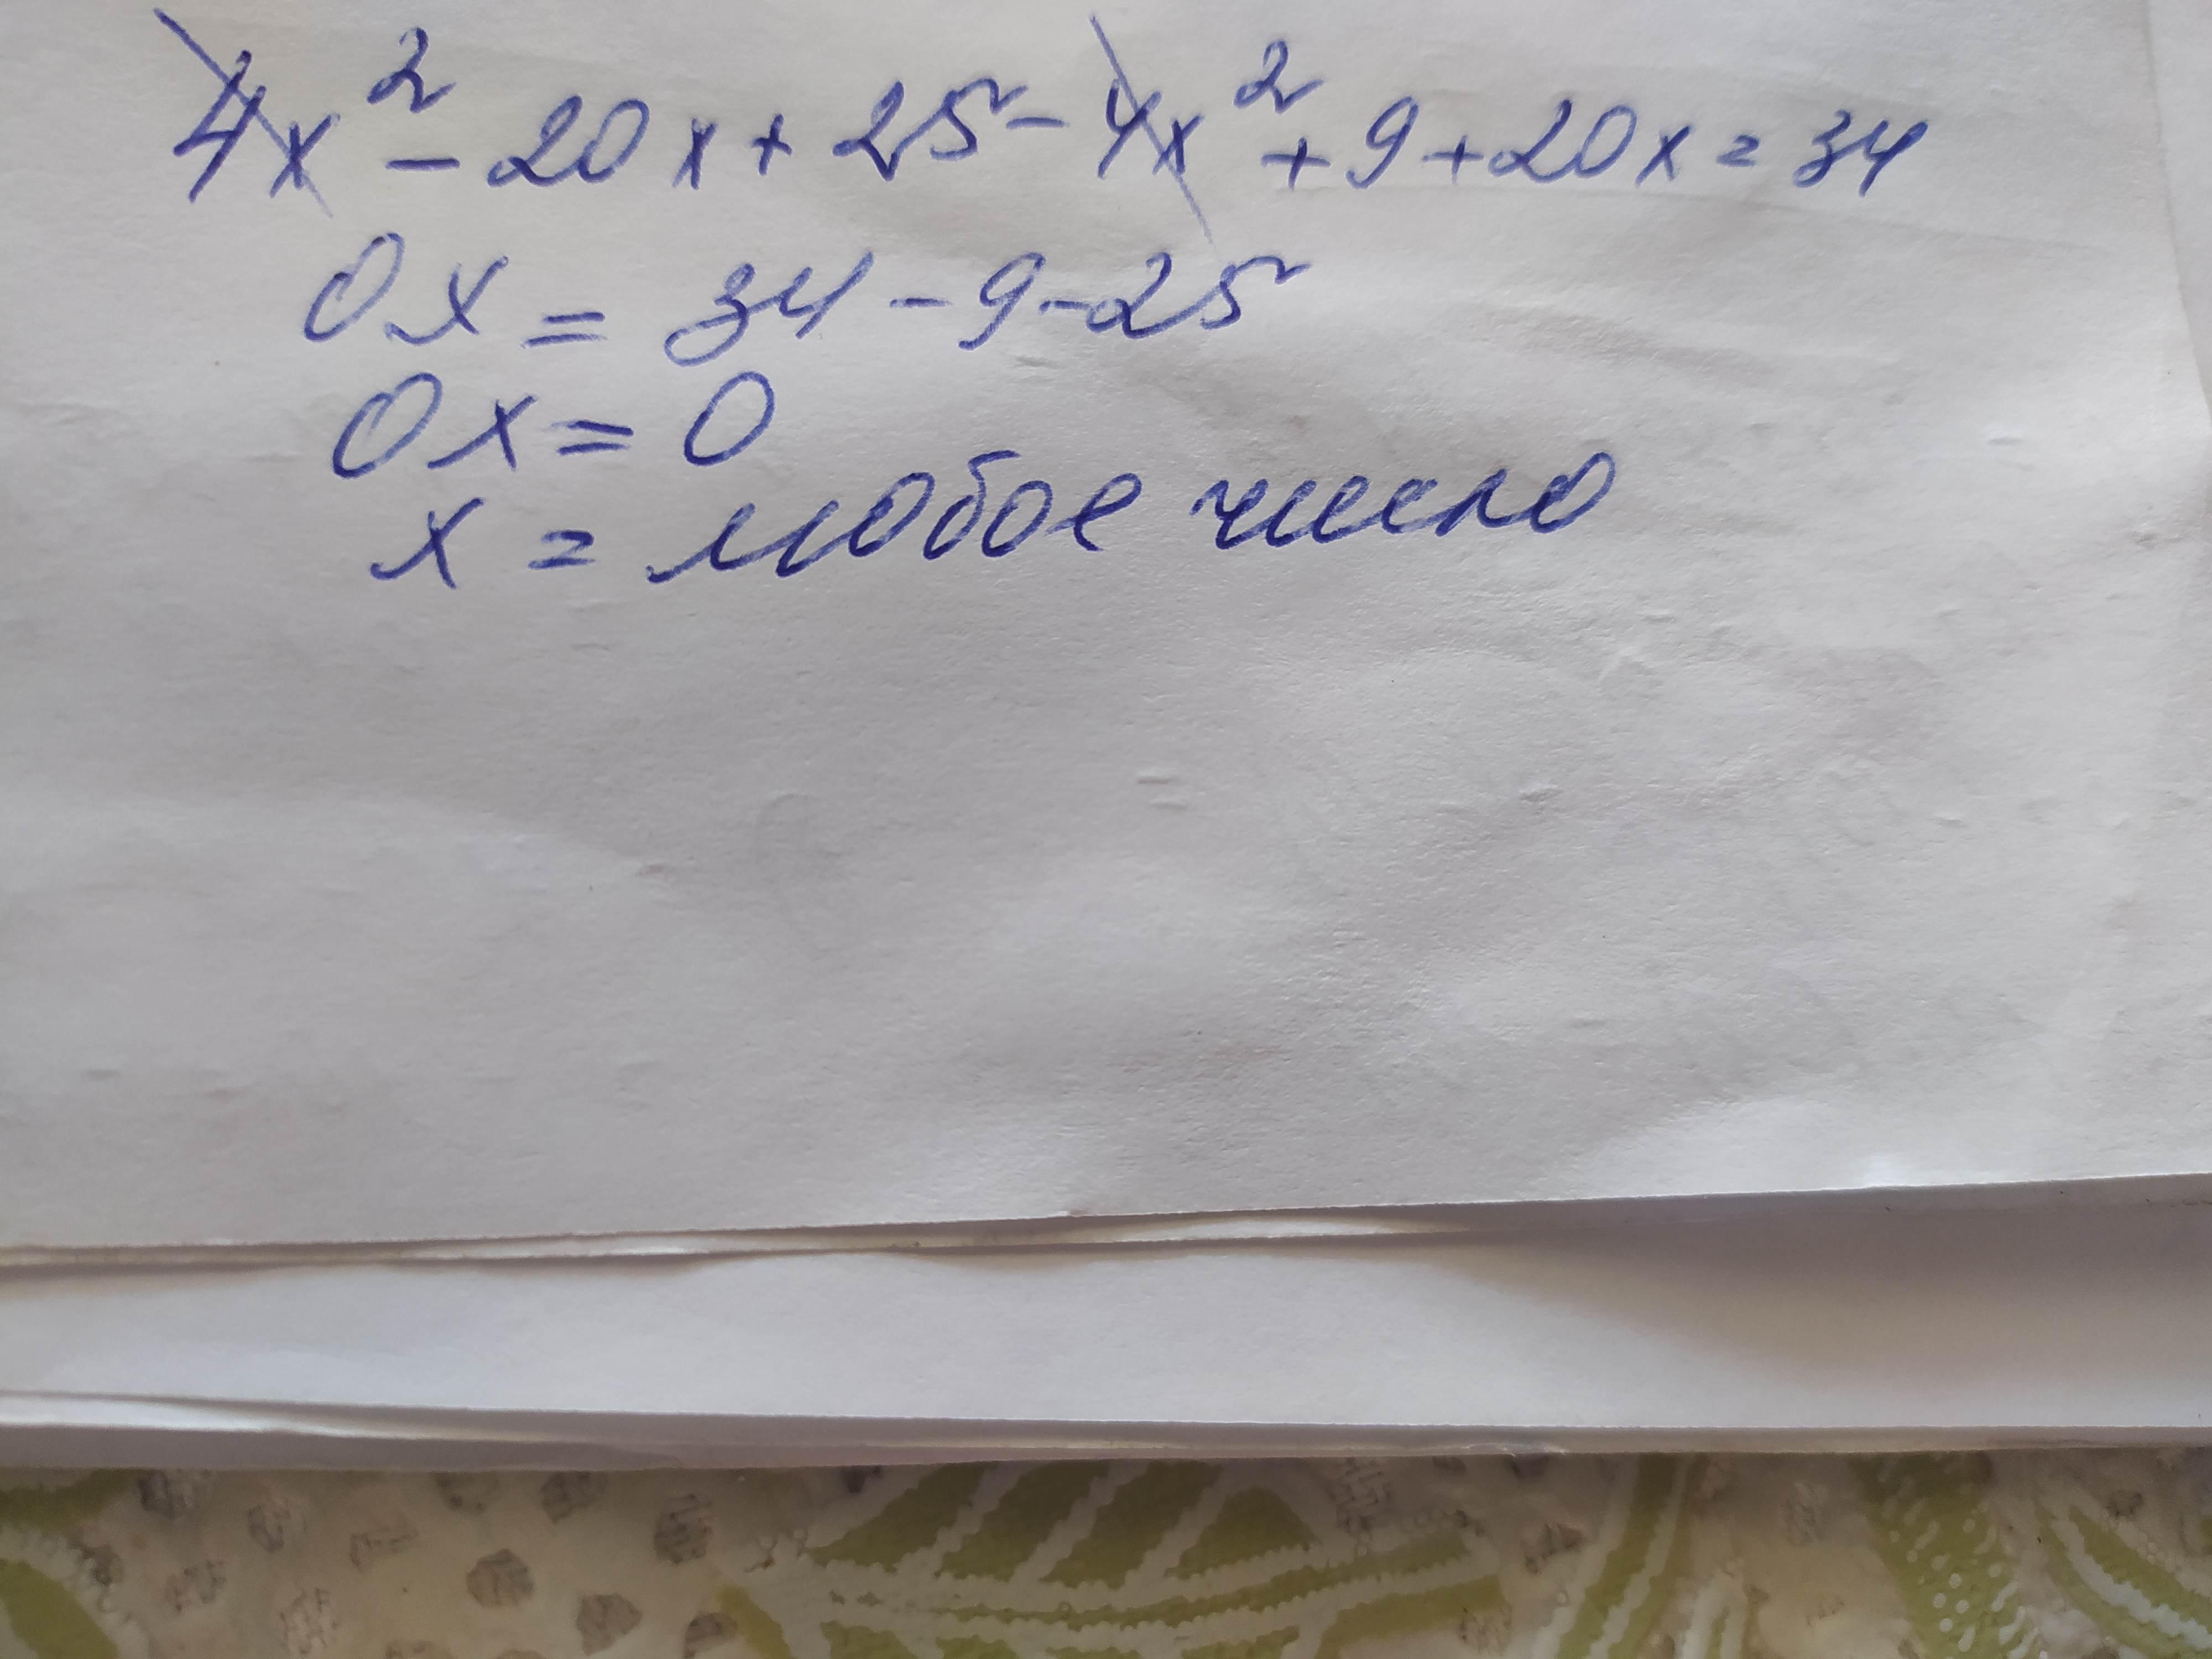 4x² - 20x + 25 - 4x² + 9 + 20x = 34
0x = 34 - 9 - 25
0x = 0
x = любое число